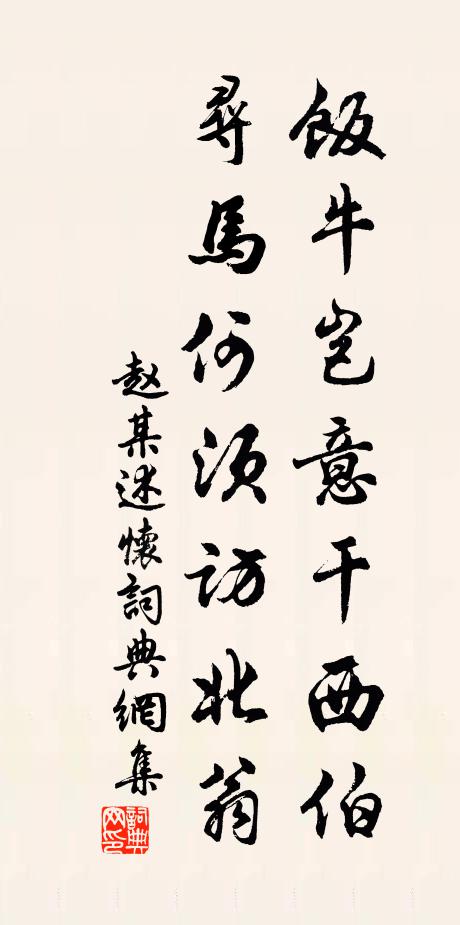 飯牛豈意干西伯
尋馬何須訪北翁
赵某述懷詞典網集
詞典网印